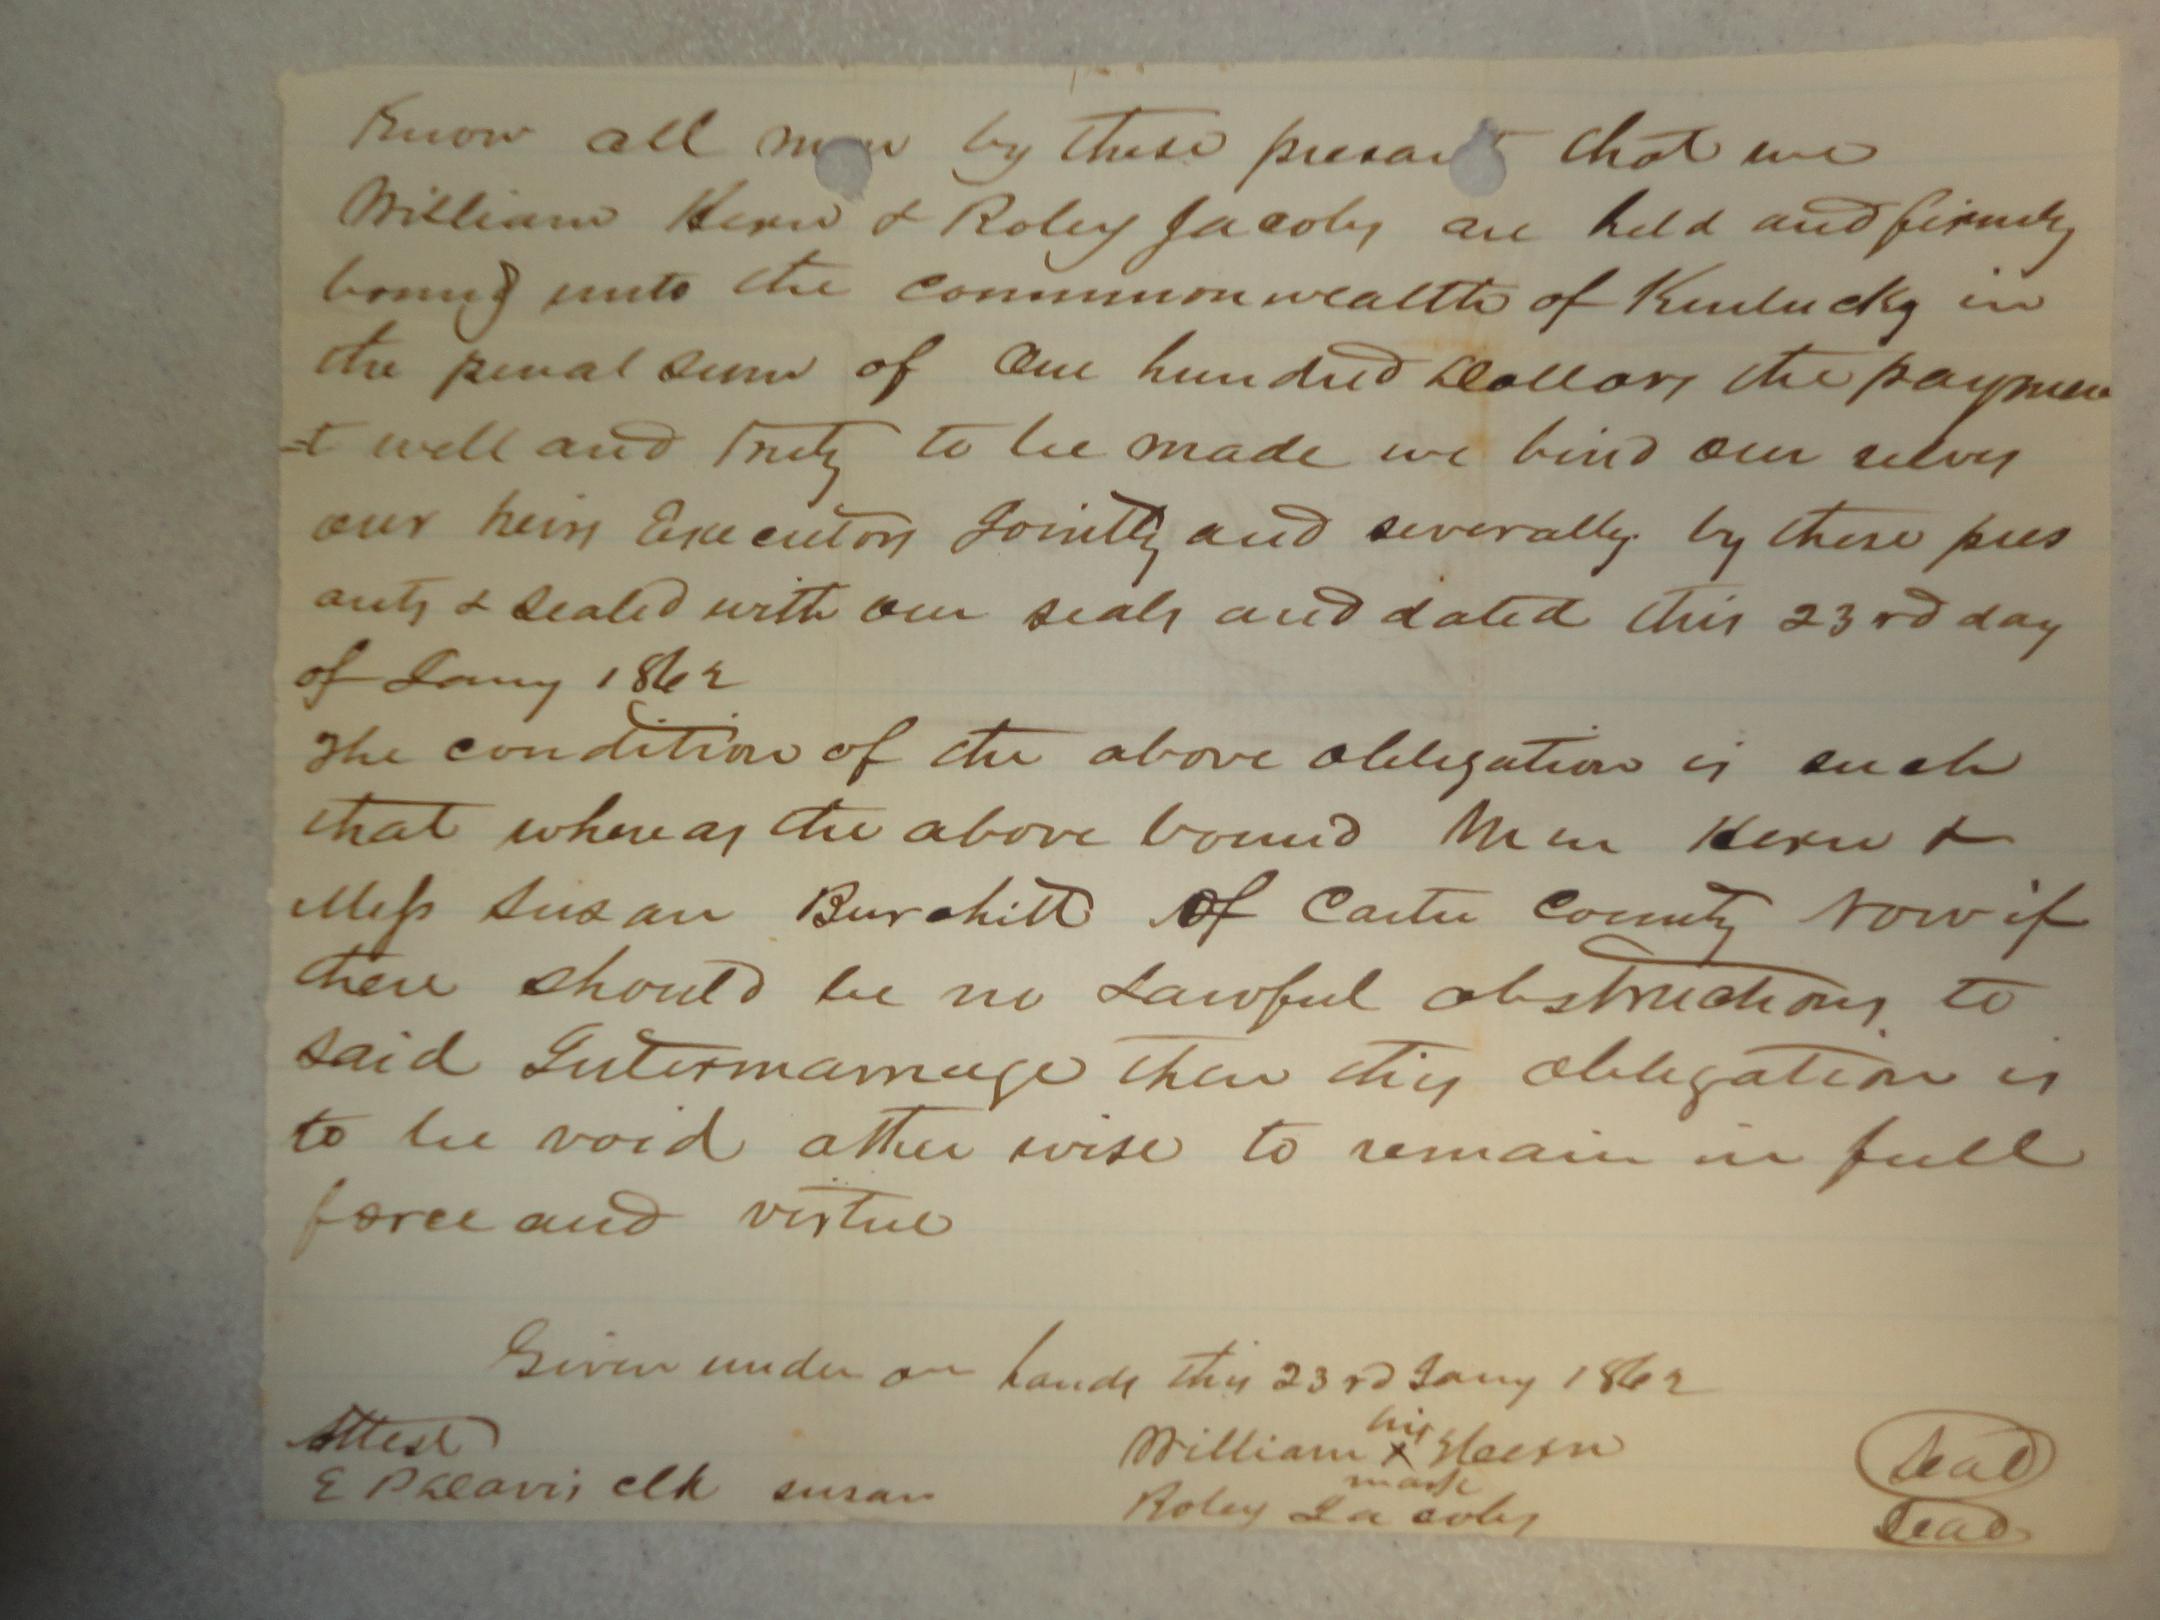 Know all men by these presant that we
William Kern & Roley Jacobs are held and firmly
bound unto the commonwealth of Kentucky in
the penal sum of One hundred Dollars the paymen
-t well and truly to be made we bind our selves
our heirs Executors Jointly and severally by these pres
ants & sealed with our seals and dated this 23rd day
of Jany 1862
The condition of the above obligation is such
that whereas the above bound Wm Kern &
Miss Susan Burchitt of Carter County Now if
there should be no Lawful obstructions to
said Intermarriage then this obligation is
to be void other wise to remain in full
force and virtue
Given under our hands this 23rd Jany 1862
Attest
his
William X Kern
Seal
mark
E P Davis clk susan
Roley Jacobs
Seal